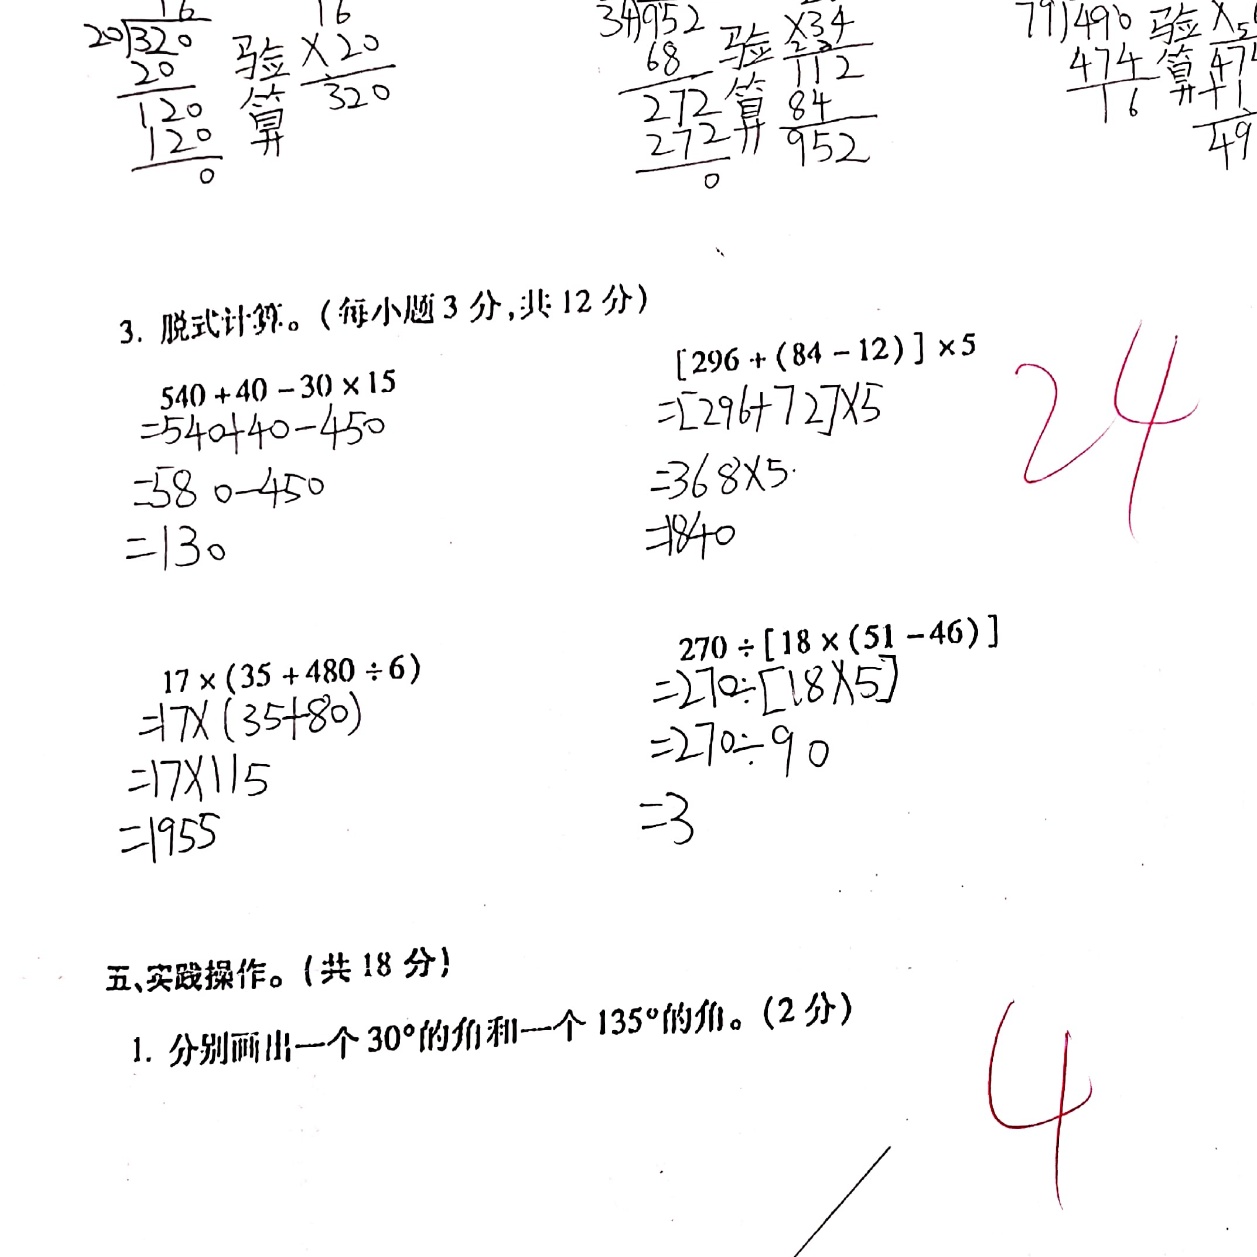 16
20)320
20
120
120
0
验算
16
×20
320
34)952
68
272
272
0
验算
×34
112
84
952
79)490
474
16
验算
474
+1
49
3. 脱式计算。(每小题3分,共12分)
540+40-30×15
=540+40-450
=580-450
=130
[296+(84-12)]×5
=[296+72]×5
=368×5
=1840
24
17×(35+480÷6)
=17×(35+80)
=17×115
=1955
270÷[18×(51-46)]
=270÷[18×5]
=270÷90
=3
五、实践操作。(共18分)
1. 分别画出一个30°的角和一个135°的角。(2分)
4